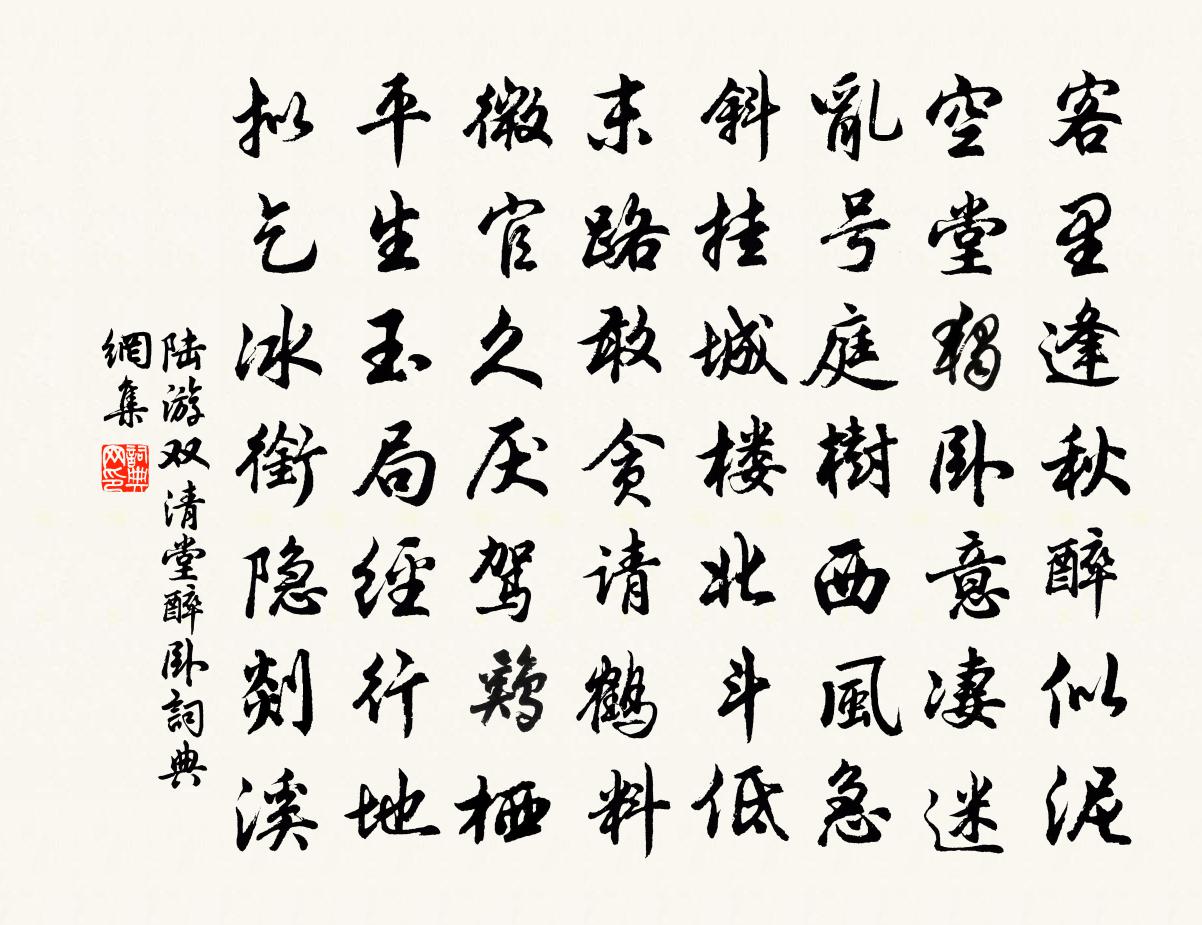 客里逢秋醉似泥
空堂獨卧意凄迷
亂号庭樹西風急
斜挂城楼北斗低
末路敢贪请鹤料
微官久厌駕鷄栖
平生玉局經行地
拟乞冰銜隐剡溪
陆游双清堂醉卧詞典
網集
詞典
网印